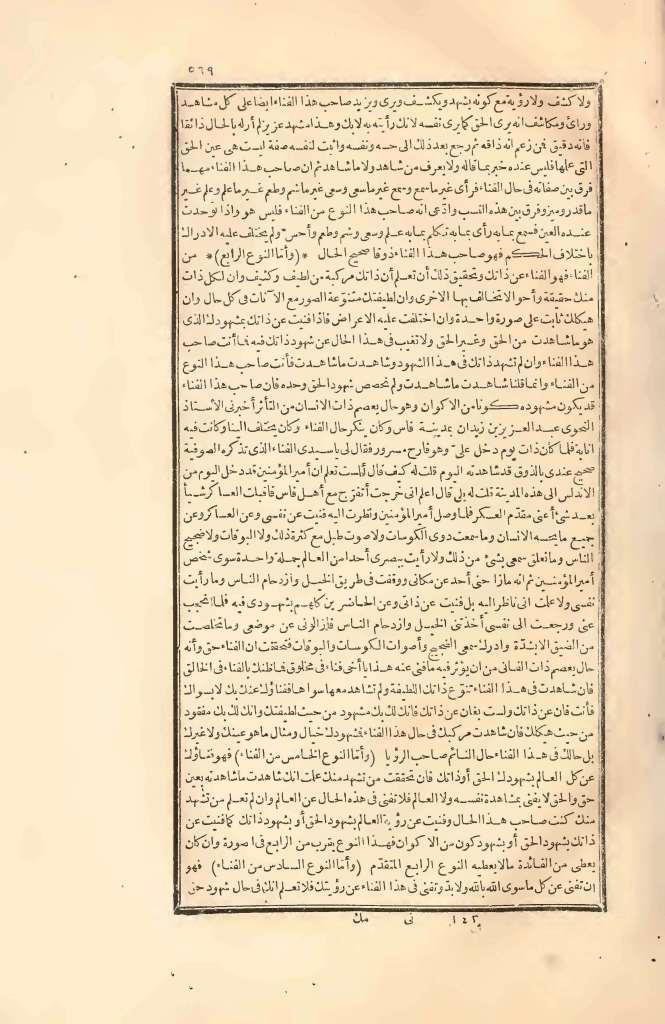 ٥٦٩
ولا كشف ولا رؤية مع كونه يشهد ويكشف ويرى ويزيد صاحب هذا الفناء ايضا على كل مشاهد
وراء ومكاشف انه يرى الحق كما يرى نفسه لانك رأيته به لا بك وهذا مشهد عزيز لم أر له بالحال ذائقا
فانه دقيق فمن زعم انه ذاقه ثم رجع بعد ذلك الى حسه ونفسه واثبت لنفسه صفة ليست هى عين الحق
التى علمها فليس عنده خبر بما قاله ولا يعرف من شاهد ولا ما شاهد ثم ان صاحب هذا الفناء مهما
فرق بين صفاته فى حال الفناء فرأى غير ما سمع وسمع غير ما سعى وسعى غير ما شم وطعم غير ما علم وعلم غير
ما قدر وميز وفرق بين هذه النسب وادّعى انه صاحب هذا النوع من الفناء فليس هو واذا توحدت
عنده العين فسمع بما به رأى بما به تكلم بما به علم وسعى وشم وطعم وأحس ولم يختلف عليه الادراك
باختلاف الحكم فهو صاحب هذا الفناء ذوقا صحيح الحال * (وأما النوع الرابع) * من
الفناء فهو الفناء عن ذاتك وتحقيق ذلك أن تعلم أن ذاتك مركبة من لطيف وكثيف وان لكل ذات
منك حقيقة وأحوالا تخالف بها الاخرى وان لطيفتك متنوّعة الصور مع الآنات فى كل حال وان
هيكلك ثابت على صورة واحدة وان اختلفت عليه الاعراض فاذا فنيت عن ذاتك بمشهودك الذى
هو ما شاهدت من الحق وغير الحق ولا تغيب فى هذا الحال عن شهود ذاتك فيه فما أنت صاحب
هذا الفناء وان لم تشهد ذاتك فى هذا الشهود وشاهدت ما شاهدت فأنت صاحب هذا النوع
من الفناء وانما قلنا شاهدت ما شاهدت ولم نخصص شهود الحق وحده فان صاحب هذا الفناء
قد يكون مشهوده كونا من الاكوان وهو حال يعصم ذات الانسان من التأثر أخبرنى الاستاذ
النحوى عبد العزيز بن زيدان بمدينة فاس وكان ينكر حال الفناء وكان يختلف الينا وكانت فيه
انابة فلما كان ذات يوم دخل علىّ وهو فارح مسرور فقال لى يا سيدى الفناء الذى تذكره الصوفية
صحيح عندى بالذوق قد شاهدته اليوم قلت له كيف قال ألست تعلم ان أمير المؤمنين قد دخل اليوم من
الاندلس الى هذه المدينة قلت له بلى قال اعلم انى خرجت أتفرّج مع أهل فاس فاقبلت العساكر شيأ
بعد شئ أعنى مقدم العسكر فلما وصل أمير المؤمنين ونظرت اليه فنيت عن نفسى وعن العساكر وعن
جميع ما يحسه الانسان وما سمعت دوى الكوسات ولا صوت طبل مع كثرة ذلك ولا البوقات ولا ضجيج
الناس وما تعلق سمعى بشئ من ذلك ولا رأيت ببصرى أحدا من العالم جملة واحدة سوى شخص
أمير المؤمنين ثم انه ما زاحنى أحد عن مكانى ووقفت فى طريق الخيل وازدحام الناس وما رأيت
نفسى ولا علمت انى ناظر اليه بل فنيت عن ذاتى وعن الحاضرين كلهم بشهودى فيه فلما انحجب
عنى ورجعت الى نفسى أخذتنى الخيل وازدحام الناس فازالونى عن موضعى وما تخلصت
من الضيق الا بشدّة وادرك سمعى الضجيج وأصوات الكوسات والبوقات فتحققت ان الفناء حق وأنه
حال يعصم ذات الفانى من ان يؤثر فيه ما فنى عنه هذا يا أخى فناء فى مخلوق فما ظنك بالفناء فى الخالق
فان شاهدت فى هذا الفناء تنوّع ذاتك اللطيفة ولم تشاهد معها سواها ففناؤك عنك بك لا بسواك
فأنت فان عن ذاتك ولست بفان عن ذاتك فانك لك بك مشهود من حيث لطيفتك وانك لك بك مفقود
من حيث هيكلك فان شاهدت مركبك فى حال هذا الفناء فمشهودك خيال ومثال ما هو عينك ولا غيرك
بل حالك فى هذا الفناء حال النائم صاحب الرؤيا (وأما النوع الخامس من الفناء) فهو فناؤك
عن كل العالم بشهودك الحق أو ذاتك فان تحققت من تشهد منك علمت انك شاهدت ما شاهدته بعين
حق والحق لا يفنى بمشاهدة نفسه ولا العالم فلا تفنى فى هذه الحال عن العالم وان لم تعلم من تشهد
منك كنت صاحب هذا الحال وفنيت عن رؤية العالم بشهود الحق أو بشهود ذاتك كما فنيت عن
ذاتك بشهود الحق أو بشهود كون من الاكوان فهذا النوع يقرب من الرابع فى الصورة وان كان
يعطى من الفائدة ما لا يعطيه النوع الرابع المتقدّم (وأما النوع السادس من الفناء) فهو
ان تفنى عن كل ما سوى الله بالله ولا بدّ وتفنى فى هذا الفناء عن رؤيتك فلا تعلم انك فى حال شهود حق
نى مك